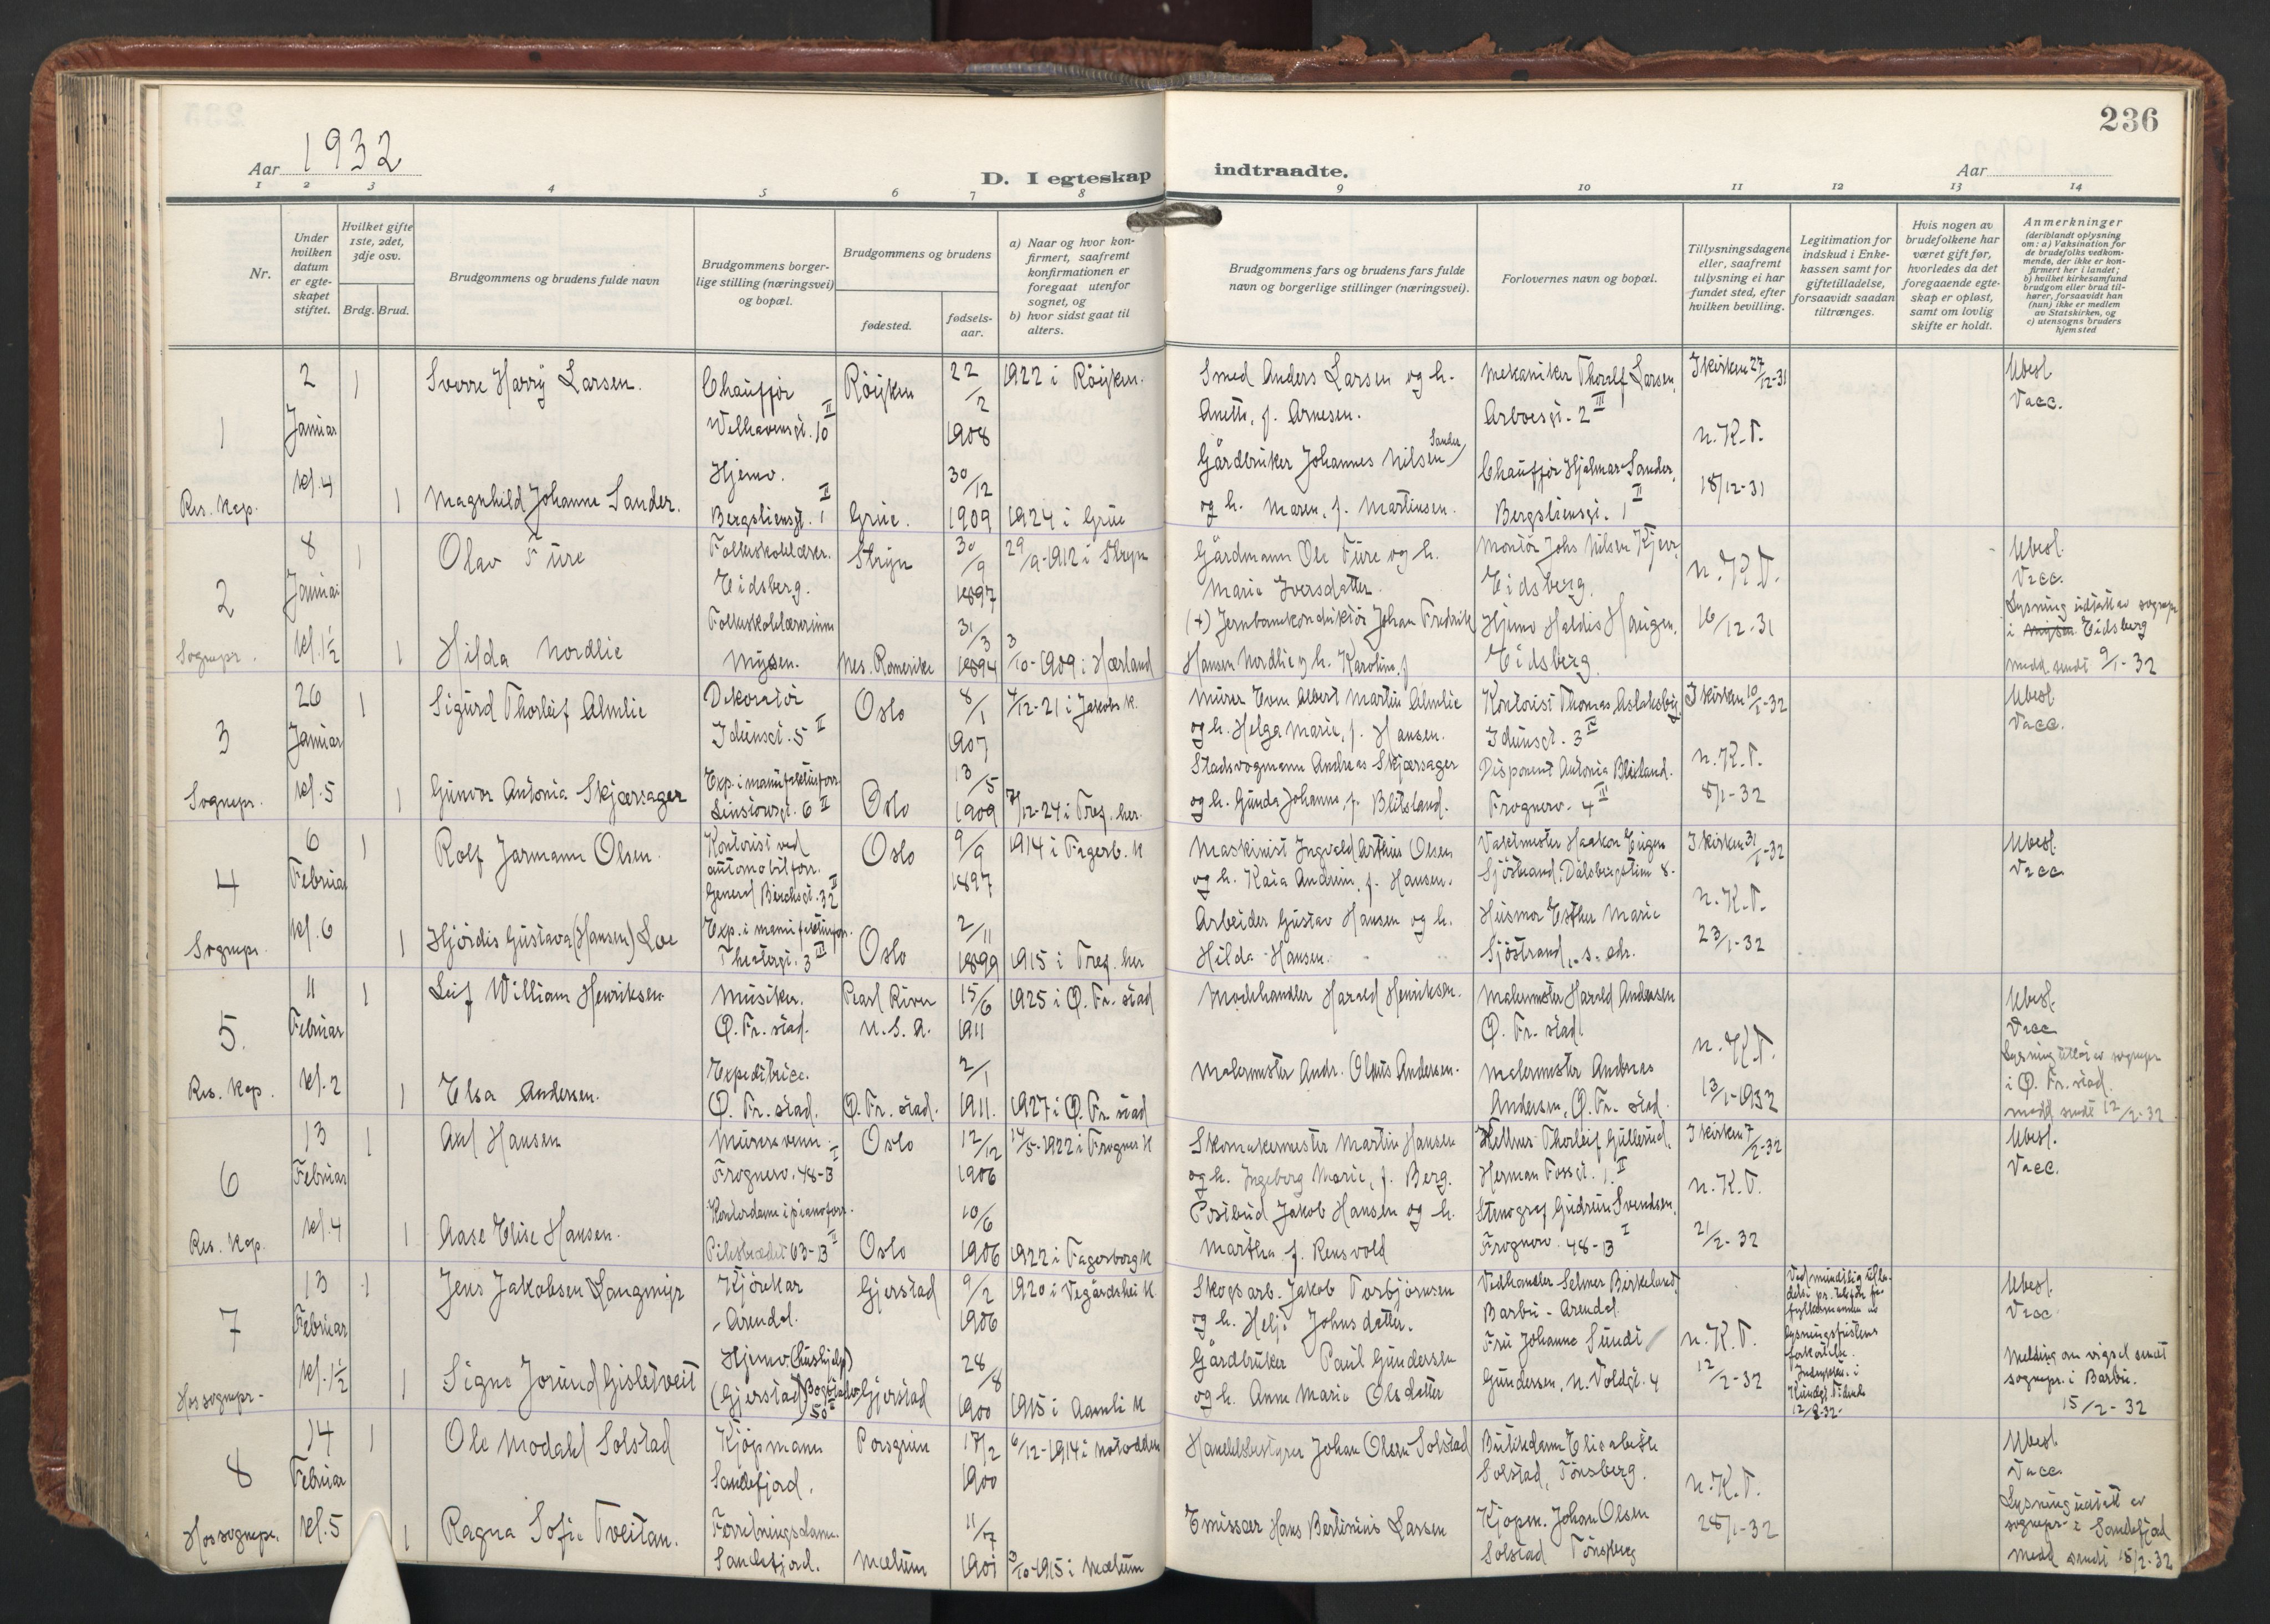 236
Aar 1932
D. I egteskap indtraadte.
Aar
1 2 3 4 5 6 7 8 9 10 11 12 13 14
Nr.
Under hvilken datum er egteskapet stiftet.
Hvilket gifte 1ste, 2det, 3dje osv.
Brdg. Brud.
Brudgommens og brudens fulde navn
Brudgommens borgerlige stilling (næringsvei) og bopæl.
Brudgommens og brudens
fødested.
fødselsaar.
a) Naar og hvor konfirmert, saafremt konfirmationen er foregaat utenfor sognet, og
b) hvor sidst gaat til alters.
Brudgommens fars og brudens fars fulde navn og borgerlige stillinger (næringsvei).
Forlovernes navn og bopæl.
Tillysningsdagene eller, saafremt tillysning ei har fundet sted, efter hvilken bevilling.
Legitimation for indskud i Enkekassen samt for giftetilladelse, forsaavidt saadan tiltrænges.
Hvis nogen av brudefolkene har været gift før, hvorledes da det foregaaende egteskap er opløst, samt om lovlig skifte er holdt.
Anmerkninger
(deriblandt oplysning om: a) Vaksination for de brudefolks vedkommende, der ikke er konfirmert her i landet; b) hvilket kirkesamfund brudgom eller brud tilhører, forsaavidt han (hun) ikke er medlem av Statskirken, og c) utensogns bruders hjemsted
1
2 Januar kl. 4
Res. kap.
1 Sverre Harry Larsen.
Chauffør
Welhavensgt. 10 II
Röyken
22/2 1908
1922 i Röyken.
Smed Anders Larsen og h.
Anette, f. Arnesen.
Mekaniker Thoralf Larsen,
Arboesgt. 2 III
I kirken 27/12-31
Ubesl.
Vacc.
1 Magnhild Johanne Sander.
Hjemv.
Bergsliensgt. 1 II
Grue.
30/12 1909
1924 i Grue
Gårdbruker Johannes Nilsen Sander
og h. Maren, f. Martinsen.
Chauffør Hjalmar Sander,
Bergsliensgt. 1 II
N.K.T.
18/12-31
2
8 Januar kl. 1½
Sognepr.
1 Olav Fure
Folkeskolelærer.
Eidsberg.
Stryn
30/9 1897
29/9-1912 i Stryn
Gårdmann Ole Fure og h.
Marie Iversdatter.
Montör Johs Nilsen Kjær,
Eidsberg.
N.K.T.
16/12-31
Ubesl.
Vacc.
Lysning utstatt av sognepr
i Eidsberg
Medd. sendt 9/1-32
1 Hilda Nordlie
Folkeskolelærerinne
Mysen.
Nes. Romerike
31/3 1894
3/10-1909 i Hærland
(+) Jernbanekonduktör Johan Fredrik
Hansen Nordlie og h. Karoline, f
Hjemv Haldis Haugen,
Eidsberg.
3
26 Januar kl. 5
Sognepr.
1 Sigurd Thorleif Almlie
Dekoratör
Idunsgt. 5 II
Oslo
8/1 1907
4/12-21 i Jakobs k.
Murer Even Albert Martin Almlie
og h. Helga Marie, f. Hansen.
Kontorist Thomas Aslaksby,
Idunsgt. 3
I kirken 10/1-32
Ubesl.
Vacc.
1 Gunvor Antonia Skjærsager
Exp. i manufakturforr.
Linstowsgt. 6 II
Oslo
13/5 1909
/12-24 i Tref. her.
Stadsvogmann Andreas Skjærsager
og h. Gunda Johanne, f. Blitsland.
Disponent Antonia Blitsland.
Frognerv. 4 III
N.K.T.
8/1-32
4
6 Februar kl. 6
Sognepr.
1 Rolf Jarmann Olsen.
Kontorist ved
automobilforr.
General Birchsgt. 32 II
Oslo
9/9 1897
1914 i Fagerb. k
Maskinist Ingvald Arthur Olsen
og h. Kaia Andrine, f. Hansen.
Vaktmester Haakon Eugen
Sjöstrand, Dalsbergstien 8.
I kirken 31/1-32
Ubesl.
Vacc.
1 Hjördis Gustava (Hansen) Loe
Exp. i manufakturforr.
Theatergt. 3 III
Oslo
2/11 1899
1915 i Tref. her
Arbeider Gustav Hansen og h.
Hilda Hansen.
Husmor Esther Marie
Sjöstrand, s. adr.
N.K.T.
23/1-32
5.
11 Februar kl. 2
Res. kap.
1 Leif William Henriksen
Musiker.
Ö. Fr. stad.
Pearl River
U.S.A.
15/6 1911
1925 i Ö. Fr. stad
Harald Henriksen.
Malermester Harald Andersen
Ö. Fr. stad.
Ubesl.
Vacc
Lysning utstatt av sognepr
i Ö. Fr. stad.
Medd sendt 12/2-32
1 Elsa Andersen.
Expeditrice.
Ö. Fr. stad.
Ö. Fr. stad.
2/1 1911.
1927 i Ö. Fr. stad
Malermester Andr. Olaus Andersen.
Malermester Andreas
Andersen, Ö. Fr. stad.
N.K.T.
13/1-1932
6
13 Februar kl. 4
Res. kap.
1 Axel Hansen
Murersvenn.
Frognerv. 48-B I
Oslo
12/12 1906
14/5-1922 i Frogner k
Skomakermester Martin Hansen
og h. Ingeborg Marie, f. Berg.
Kellner Thorleif Gullerud,
Herman Fossgt. 1. II
I kirken 7/2-32
Ubesl.
Vacc.
1 Aase Elise Hansen.
Kontordame i pianoforr.
Pilestrædet 63-B II
Oslo
10/6 1906
1922 i Fagerborg k
Postbud Jakob Hansen og h.
Martha f. Rensvold
Stenograf Gudrun Svendsen,
Frognerv. 48-B I
N.K.T.
2/2-32
7
13 Februar kl. 1½
Hos sognepr.
1 Jens Jakobsen Langmyr
Kjörekar
Arendal.
Gjerstad
9/2 1906
1920 i Vegårdshei k
Skogsarb. Jakob Torbjörnsen
og h. Helje Johnsdatter.
Vedhandler Selmer Birkeland,
Barbu - Arendal.
Ubesl.
Vacc.
Melding om vigsel sendt
sognepr. i Barbu.
15/2-32
1 Signe Jorund Gisletveit
Hjemv. (hushjelp)
(Gjerstad) Bogstadv. 50 II
Gjerstad
28/8 1900
1915 i Aamli k
Gårdbruker Paul Gundersen
og h. Anne Marie Olsdatter
Fru Johanne Sundt
Gundersen, N. Voldgt. 4
N.K.T.
12/2-32
8
14 Februar kl. 5
Hos sognepr.
1 Ole Modahl Solstad
Kjöpmann
Sandefjord.
Porsgrunn
17/2 1900
6/12-1914 i Notodden
Handelsbestyrer Johan Olsen Solstad
Butikdame Elisabeth
Solstad, Tönsberg.
Ubesl.
Vacc.
Lysning utstatt av
sognepr. i Sandefjord
Medd sendt 15/2-32
1 Ragna Sofie Tveitan.
Forretningsdame.
Sandefjord.
Mælum
11/7 1901
3/10-1915 i Mælum
Emissær Hans Bertinius Larsen
Kjöpm. Johan Olsen
Solstad Tönsberg
N.K.T.
28/1-32